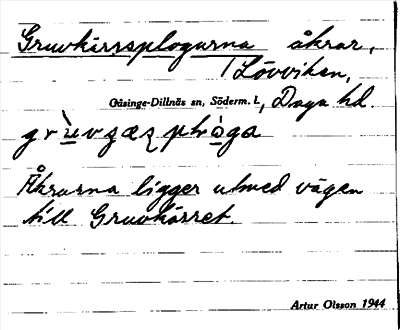 Gruvkärrsplogarna åkrar,
/ Lövviken,
Gåsinge-Dillnäs sn, Söderm. l., Daga hd.
Åkrarna ligger utmed vägen
till Gruvkärret.
Artur Olsson 1944